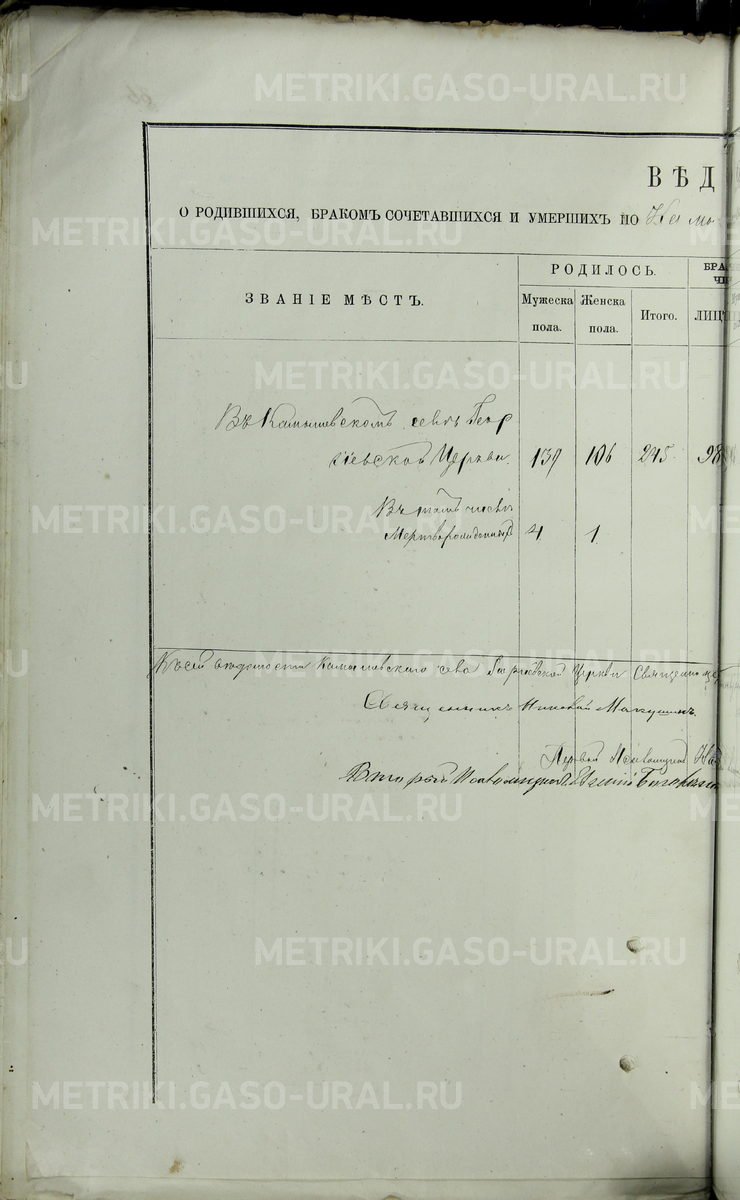 ВѢД
О РОДИВШИХСЯ, БРАКОМЪ СОЧЕТАВШИХСЯ И УМЕРШИХЪ ПО Камы
ЗВАНІЕ МѢСТЪ.
РОДИЛОСЬ.
БРА
ЧИ
Мужеска пола.
Женска пола.
Итого.
ЛИЦЪ
Въ Камышевскомъ селѣ Геор
гіевской Церкви.
139
106
245
98
Въ томъ числѣ
Мертворожденныхъ
4
1
Къ сей вѣдомости Камышевскаго села Георгіевской Церкви
Священникъ Николай Макушинъ.
Первой Псаломщикъ
Второй Псаломщикъ Евгеній
METRIKI.GASO-URAL.RU